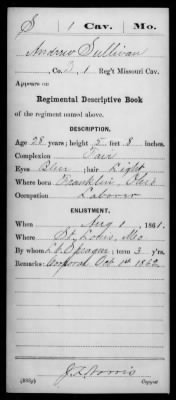 S 1 Cav. Mo.
Andrew Sullivan
, Co. , 1 Reg't Missouri Cav.
Appears on
Regimental Descriptive Book
of the regiment named above.
DESCRIPTION.
Age 28 years; height 5 feet 8 inches.
Complexion Fair
Eyes Blue ; hair Light
Where born Franklin,
Occupation Laborer
ENLISTMENT.
When Aug 1 , 1861.
Where St. Louis, Mo
By whom ; term 3 y'rs.
Remarks: Corporal Oct 1st 1862,
J. Norris
Copyist.